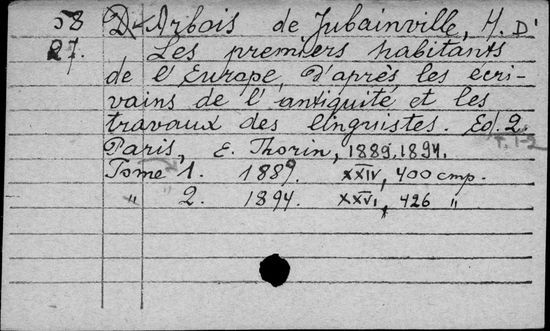 58 D'Arbois de Jubainville, H. D'
27. Les premiers habitants
de l'Europe, d'après les écri-
vains de l'antiquité et les
travaux des linguistes. Ed. 2.
T. 1-2
Paris, E. Thorin, 1889, 1894.
Tome 1. 1889. XXIV, 400 cmp.
" 2. 1894. XXVI, 426 "